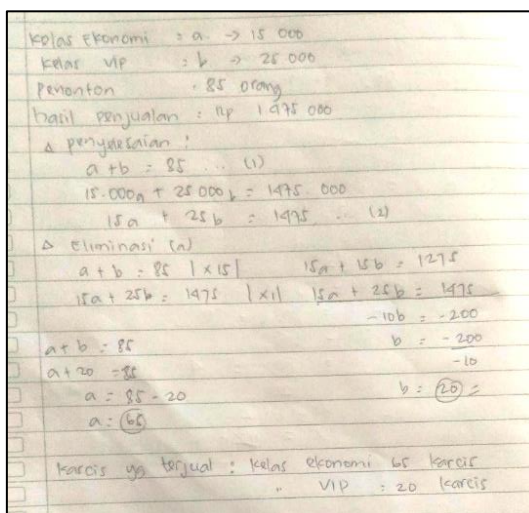 Kelas Ekonomi : a → 15 000
Kelas VIP : b → 25 000
Penonton : 85 orang
hasil penjualan : Rp 1475 000
△ penyelesaian :
a + b = 85 ... (1)
15.000a + 25 000b = 1475 000
15a + 25b = 1475 ... (2)
△ Eliminasi (a)
a + b = 85 | x15 | 15a + 15b = 1275
15a + 25b = 1475 | x1 | 15a + 25b = 1475
-10b = -200
a + b = 85 b = -200
a + 20 = 85 -10
a = 85 - 20 b = 20 =
a = 65
Karcis yg terjual : kelas ekonomi 65 karcis
" VIP = 20 karcis